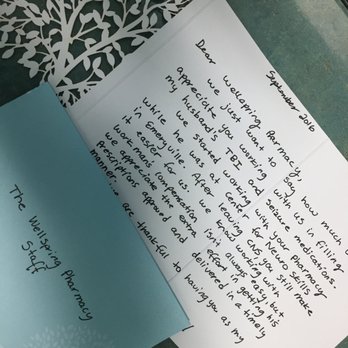 September 2016
Dear Wellspring Parmacy,
We just want to say how much
appreciate you working with us in filling
my husband's TBI and seizure medications.
We started working with your pharmacy
while he was at Center for Neuro skills
in Emeryville. After leaving CNS, you still make
easier for us. We know working with
workmans compensation isn't always easy, but
we appreciate the extra effort in getting his
prescriptions approved and delivered in a timely
manner.
are thankful to having you as my
The Wellspring Pharmacy
Staff